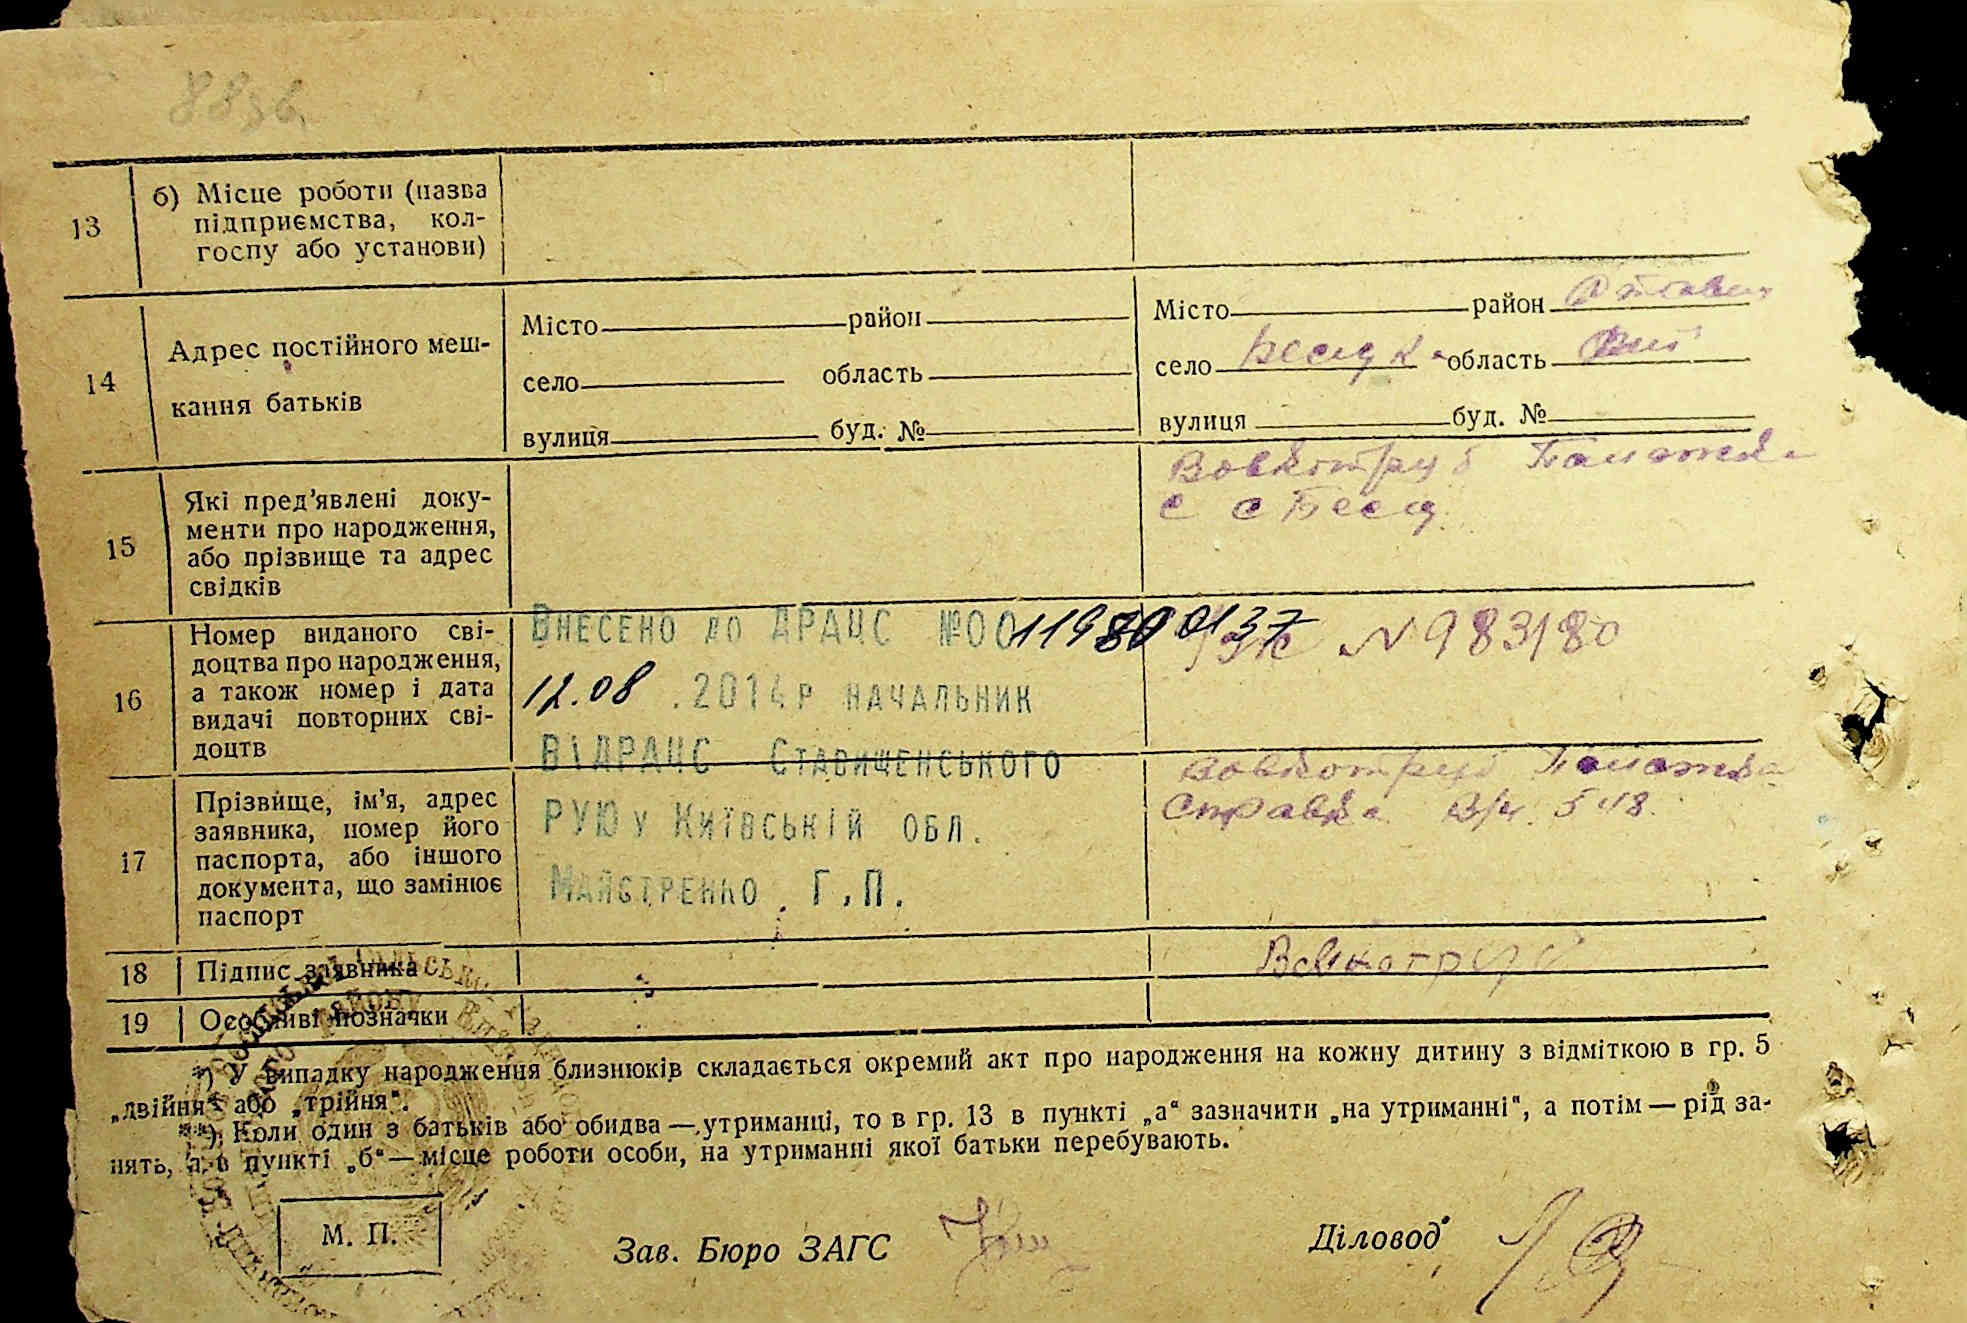 88зв.
13
б) Місце роботи (назва
підприємства, кол-
госпу або установи)
14
Адрес постійного меш-
кання батьків
Місто район
село область
вулиця буд. №
Місто район Ставищ
село Бесідка область Київ
вулиця буд. №
15
Які пред'явлені доку-
менти про народження,
або прізвище та адрес
свідків
Вовкотруб
с с Бесід.
16
Номер виданого сві-
доцтва про народження,
а також номер і дата
видачі повторних сві-
доцтв
Внесено до ДРАЦС №00119800137
12.08.2014р начальник
ВіДРАЦС Ставищенського
РУЮ у Київській обл.
Майстренко Г.П.
N 983180
17
Прізвище, ім'я, адрес
заявника, номер його
паспорта, або іншого
документа, що замінює
паспорт
Вовкотруб
Справка 548.
18
Підпис заявника
Вовкотруб
19
Особливі позначки
*) У випадку народження близнюків складається окремий акт про народження на кожну дитину з відміткою в гр. 5
„двійня“ або „трійня“.
**) Коли один з батьків або обидва — утриманці, то в гр. 13 в пункті „а“ зазначити „на утриманні“, а потім — рід за-
нять, а в пункті „б“ — місце роботи особи, на утриманні якої батьки перебувають.
М. П.
Зав. Бюро ЗАГС
Діловод